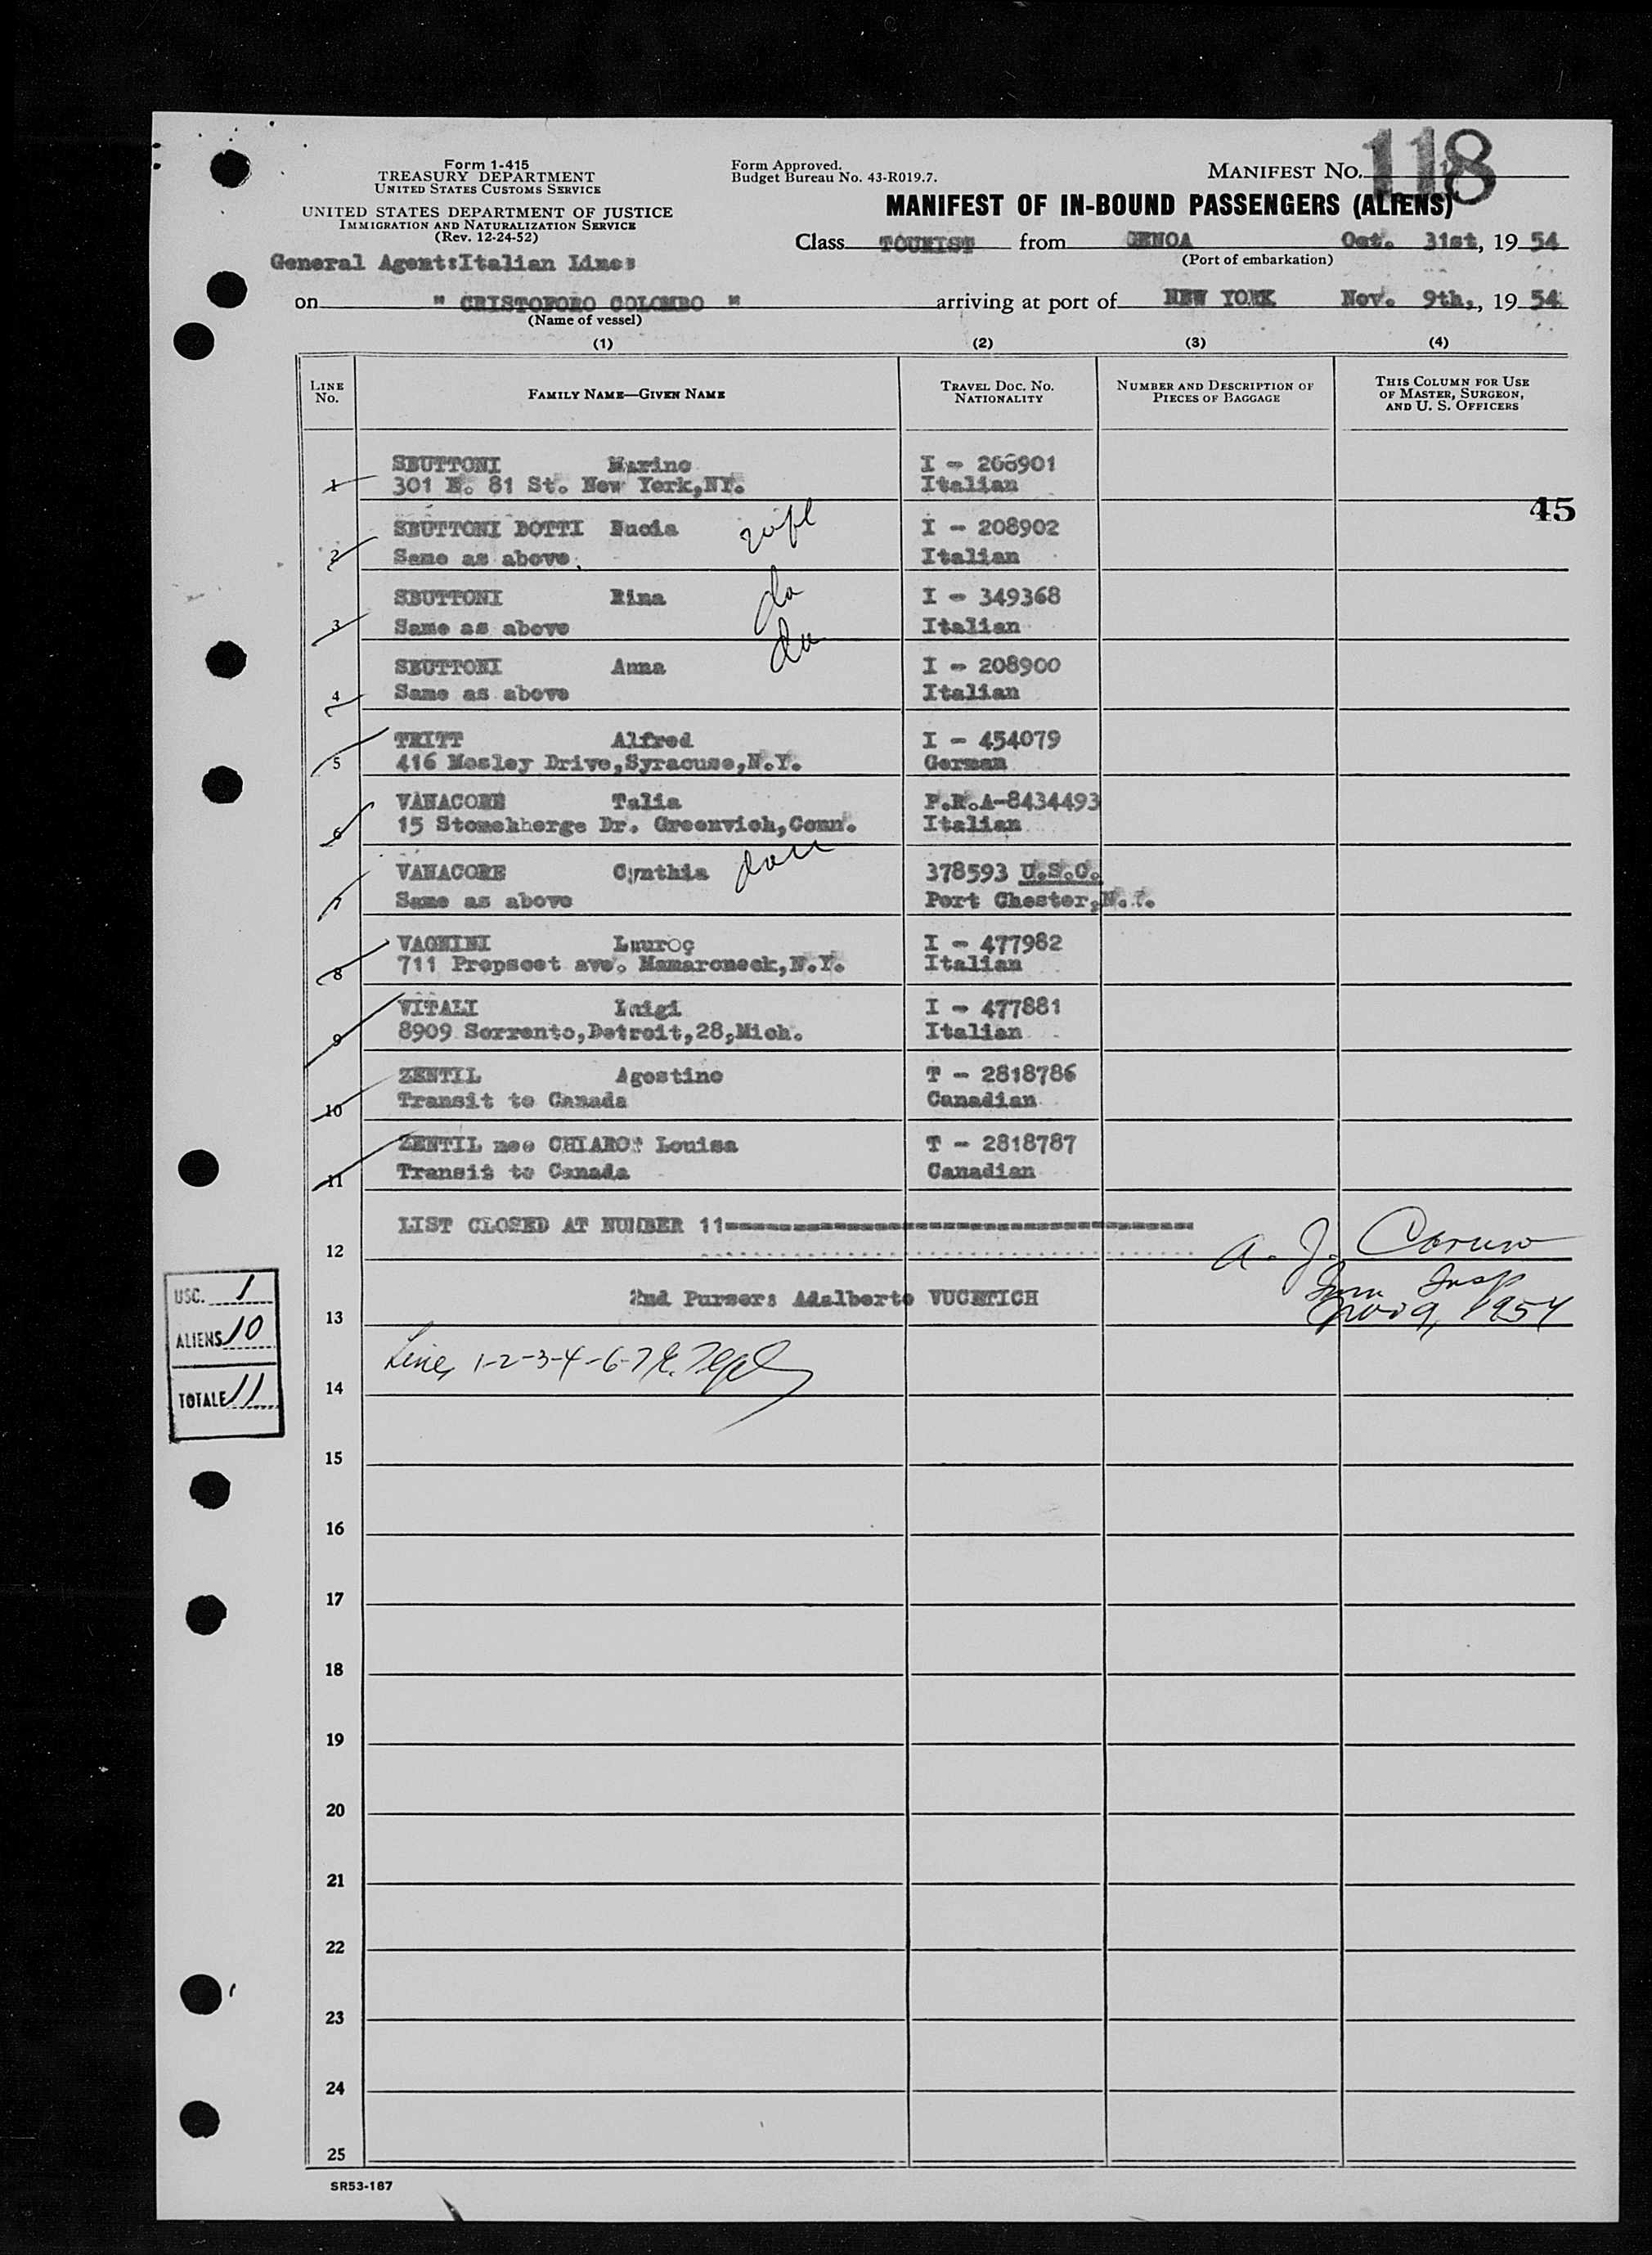 118
Form 1-415
TREASURY DEPARTMENT
UNITED STATES CUSTOMS SERVICE
UNITED STATES DEPARTMENT OF JUSTICE
IMMIGRATION AND NATURALIZATION SERVICE
(Rev. 12-24-52)
Form Approved.
Budget Bureau No. 43-R019.7.
MANIFEST NO.
MANIFEST OF IN-BOUND PASSENGERS (ALIENS)
Class TOURIST from GENOA Oct. 31st, 19 54
(Port of embarkation)
General Agent:Italian Lines
on " CRISTOFORO COLOMBO " arriving at port of NEW YORK Nov. 9th, 19 54
(Name of vessel)
(1) (2) (3) (4)
LINE No. FAMILY NAME—GIVEN NAME TRAVEL DOC. NO. NATIONALITY NUMBER AND DESCRIPTION OF PIECES OF BAGGAGE THIS COLUMN FOR USE OF MASTER, SURGEON, AND U. S. OFFICERS
SBUTTONI Marino I - 208901
1 301 E. 81 St. New York,NY. Italian
45
SBUTTONI BOTTI Lucia wife I - 208902
2 Same as above. Italian
SBUTTONI Rina da I - 349368
3 Same as above Italian
SBUTTONI Anna da I - 208900
4 Same as above Italian
TRITT Alfred I - 454079
5 416 Mosley Drive,Syracuse,N.Y. German
VANACORE Talia P.R.A-8434493
6 15 Stonehherge Dr. Greenwich,Conn. Italian
VANACORE Cynthia dau 378593 U.S.C.
7 Same as above Port Chester,N.Y.
VAGNINI I - 477982
8 711 Propscet ave. Mamaroneck,N.Y. Italian
VITALI Luigi I - 477881
9 8909 Sorrento,Detroit,28,Mich. Italian
ZENTIL Agostino T - 2818786
10 Transit to Canada Canadian
ZENTIL nee CHIAROT Louisa T - 2818787
11 Transit to Canada Canadian
LIST CLOSED AT NUMBER 11
12
A. J. Caruso
Imm Insp
Nov 9, 1954
2nd Purser: Adalberto VUCETICH
13
Line 1-2-3-4-6-7
14
USC. 1
ALIENS 10
TOTALE 11
15
16
17
18
19
20
21
22
23
24
25
SR53-187